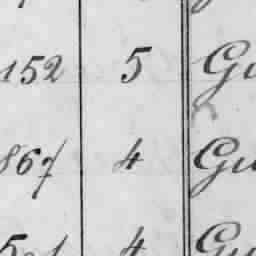 152 5 Gu
867 4 Gu
4 Gu